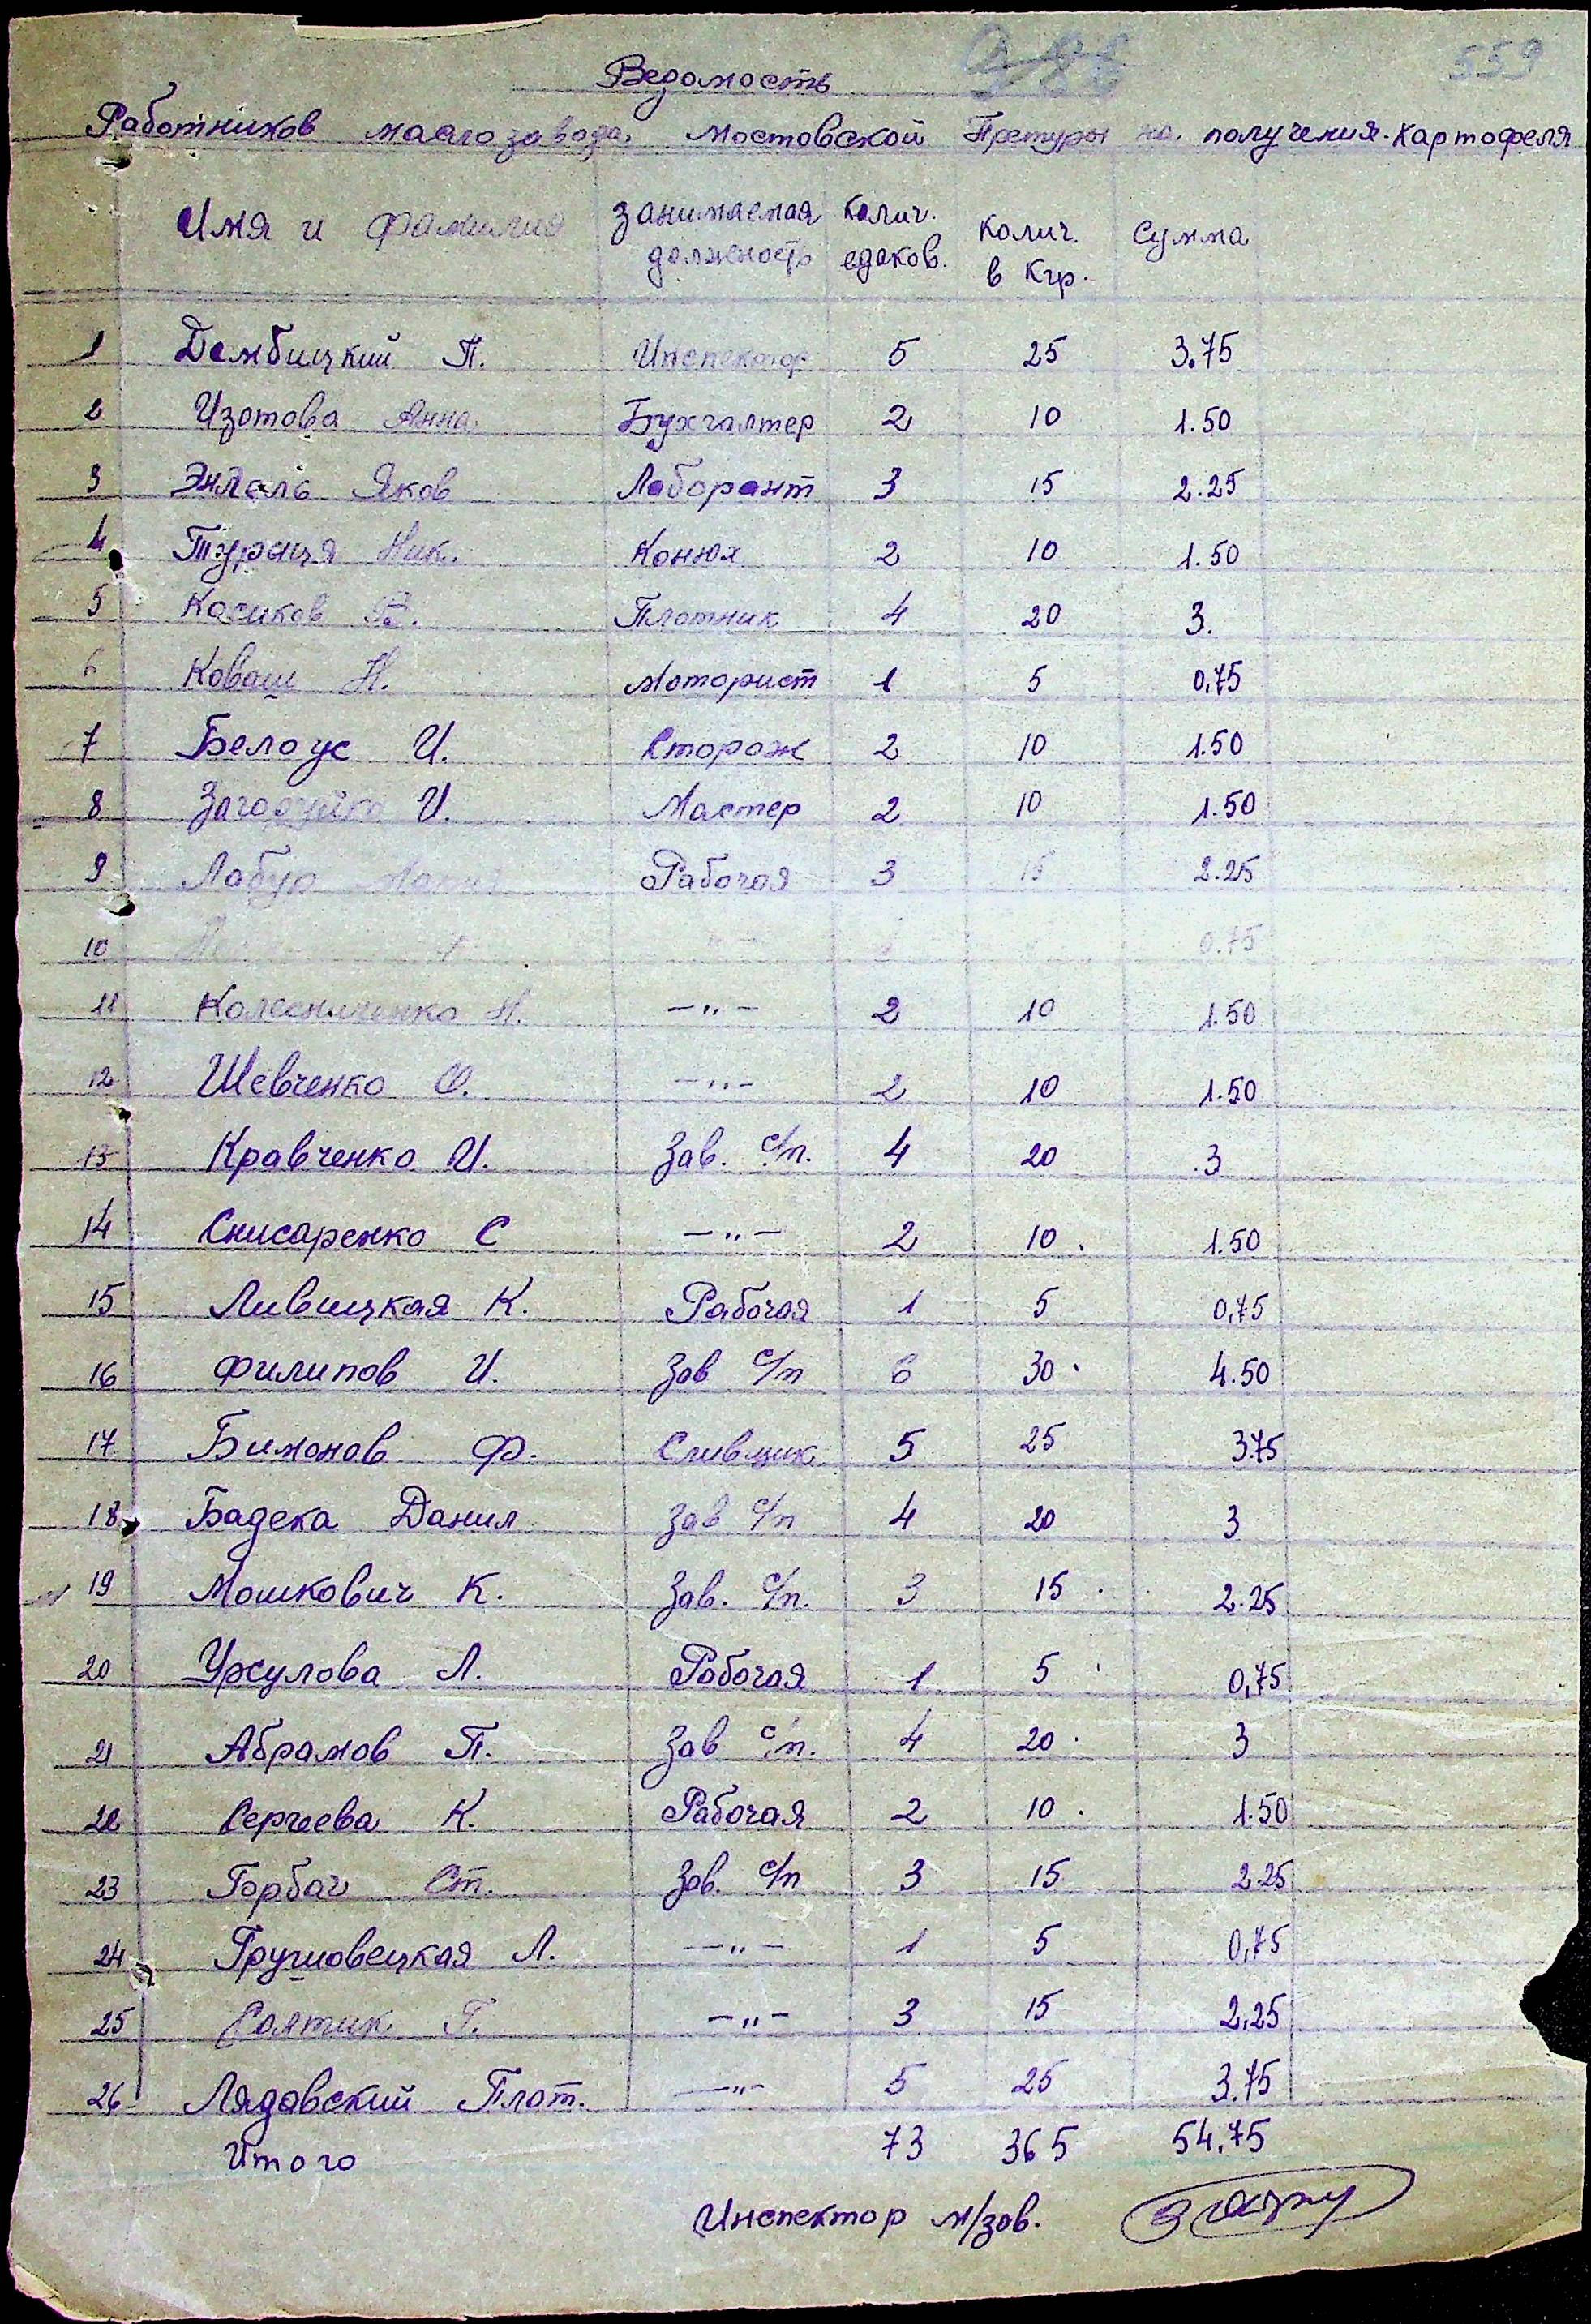 559
Ведомость
Работников маслозавода Мостовской Претуры на получения картофеля
Имя и фамилия Занимаемая должность Колич. едоков. Колич. в Кгр. Сумма
1 Дембицкий П. Инспектор 5 25 3.75
2 Изотова Анна Бухгалтер 2 10 1.50
3 Энгель Яков Лаборант 3 15 2.25
4 Туреця Ник. Конюх 2 10 1.50
5 Косиков В. Плотник 4 20 3.
6 Коваш Н. Моторист 1 5 0,75
7 Белоус И. Сторож 2 10 1.50
8 Загородуйко И. Мастер 2 10 1.50
9 Лабур Мария Рабочая 3 15 2.25
10 0.75
11 Колесниченко Н. —〃— 2 10 1.50
12 Шевченко О. —〃— 2 10 1.50
13 Кравченко И. Зав. с/п. 4 20 3
14 Снисаренко С —〃— 2 10. 1.50
15 Ливицкая К. Рабочая 1 5 0,75
16 Филипов И. Зав с/п 6 30. 4.50
17 Бимонов Ф. Сливщик 5 25 3.75
18 Бадека Данил Зав с/п 4 20 3
19 Мошкович К. Зав. с/п. 3 15. 2.25
20 Урсулова Л. Рабочая 1 5 0,75
21 Абрамов П. Зав с/п. 4 20. 3
22 Сергеева К. Рабочая 2 10. 1.50
23 Горбач Ст. Зав. с/п 3 15 2.25
24 Грушовецкая Л. —〃— 1 5 0,75
25 Солтик Г. —〃— 3 15 2,25
26 Лядовский Плат. —〃— 5 25 3.75
Итого 73 365 54,75
Инспектор м/зав.